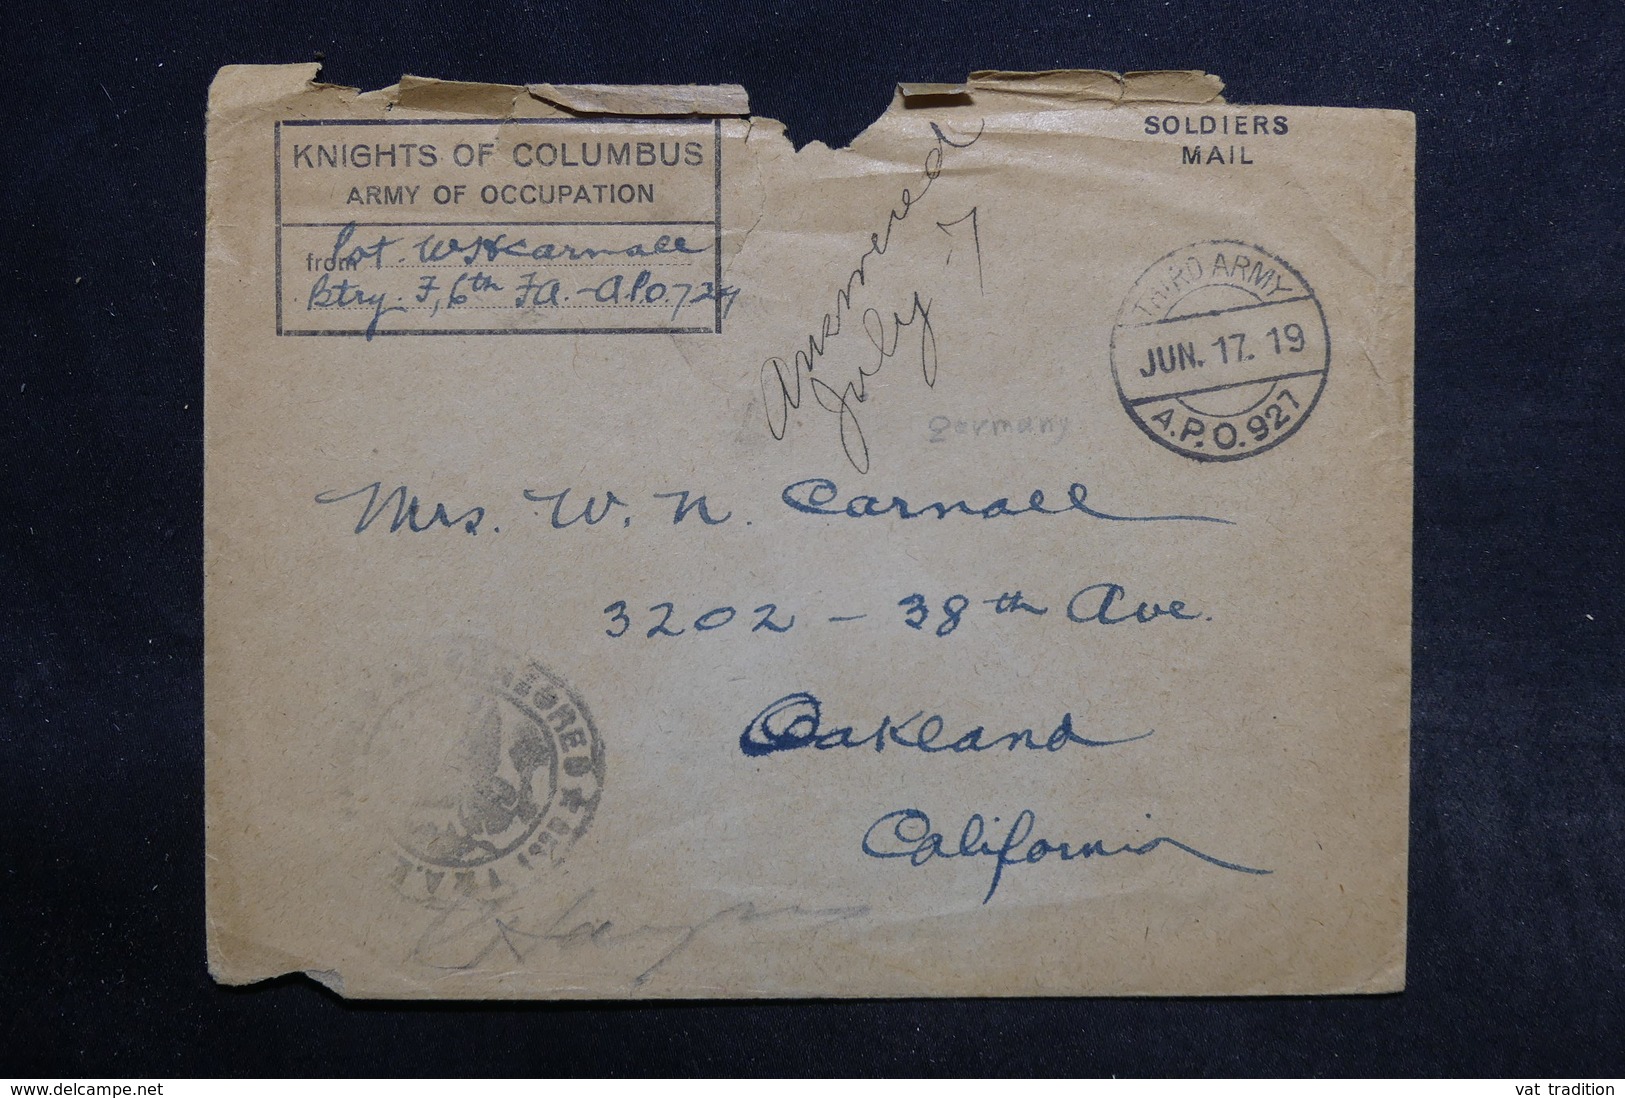 KNIGHTS OF COLUMBUS
ARMY OF OCCUPATION
from Pvt. W H Carnall
Btry. F, 6th F A. - A P O. 727
SOLDIERS
MAIL
Answered
July 7
THIRD ARMY
JUN. 17. 19
A.P.O. 927
Germany
Mrs. W. N. Carnall
3202 - 38th Ave.
Oakland
California
CENSORED
delcampe.net
vat tradition